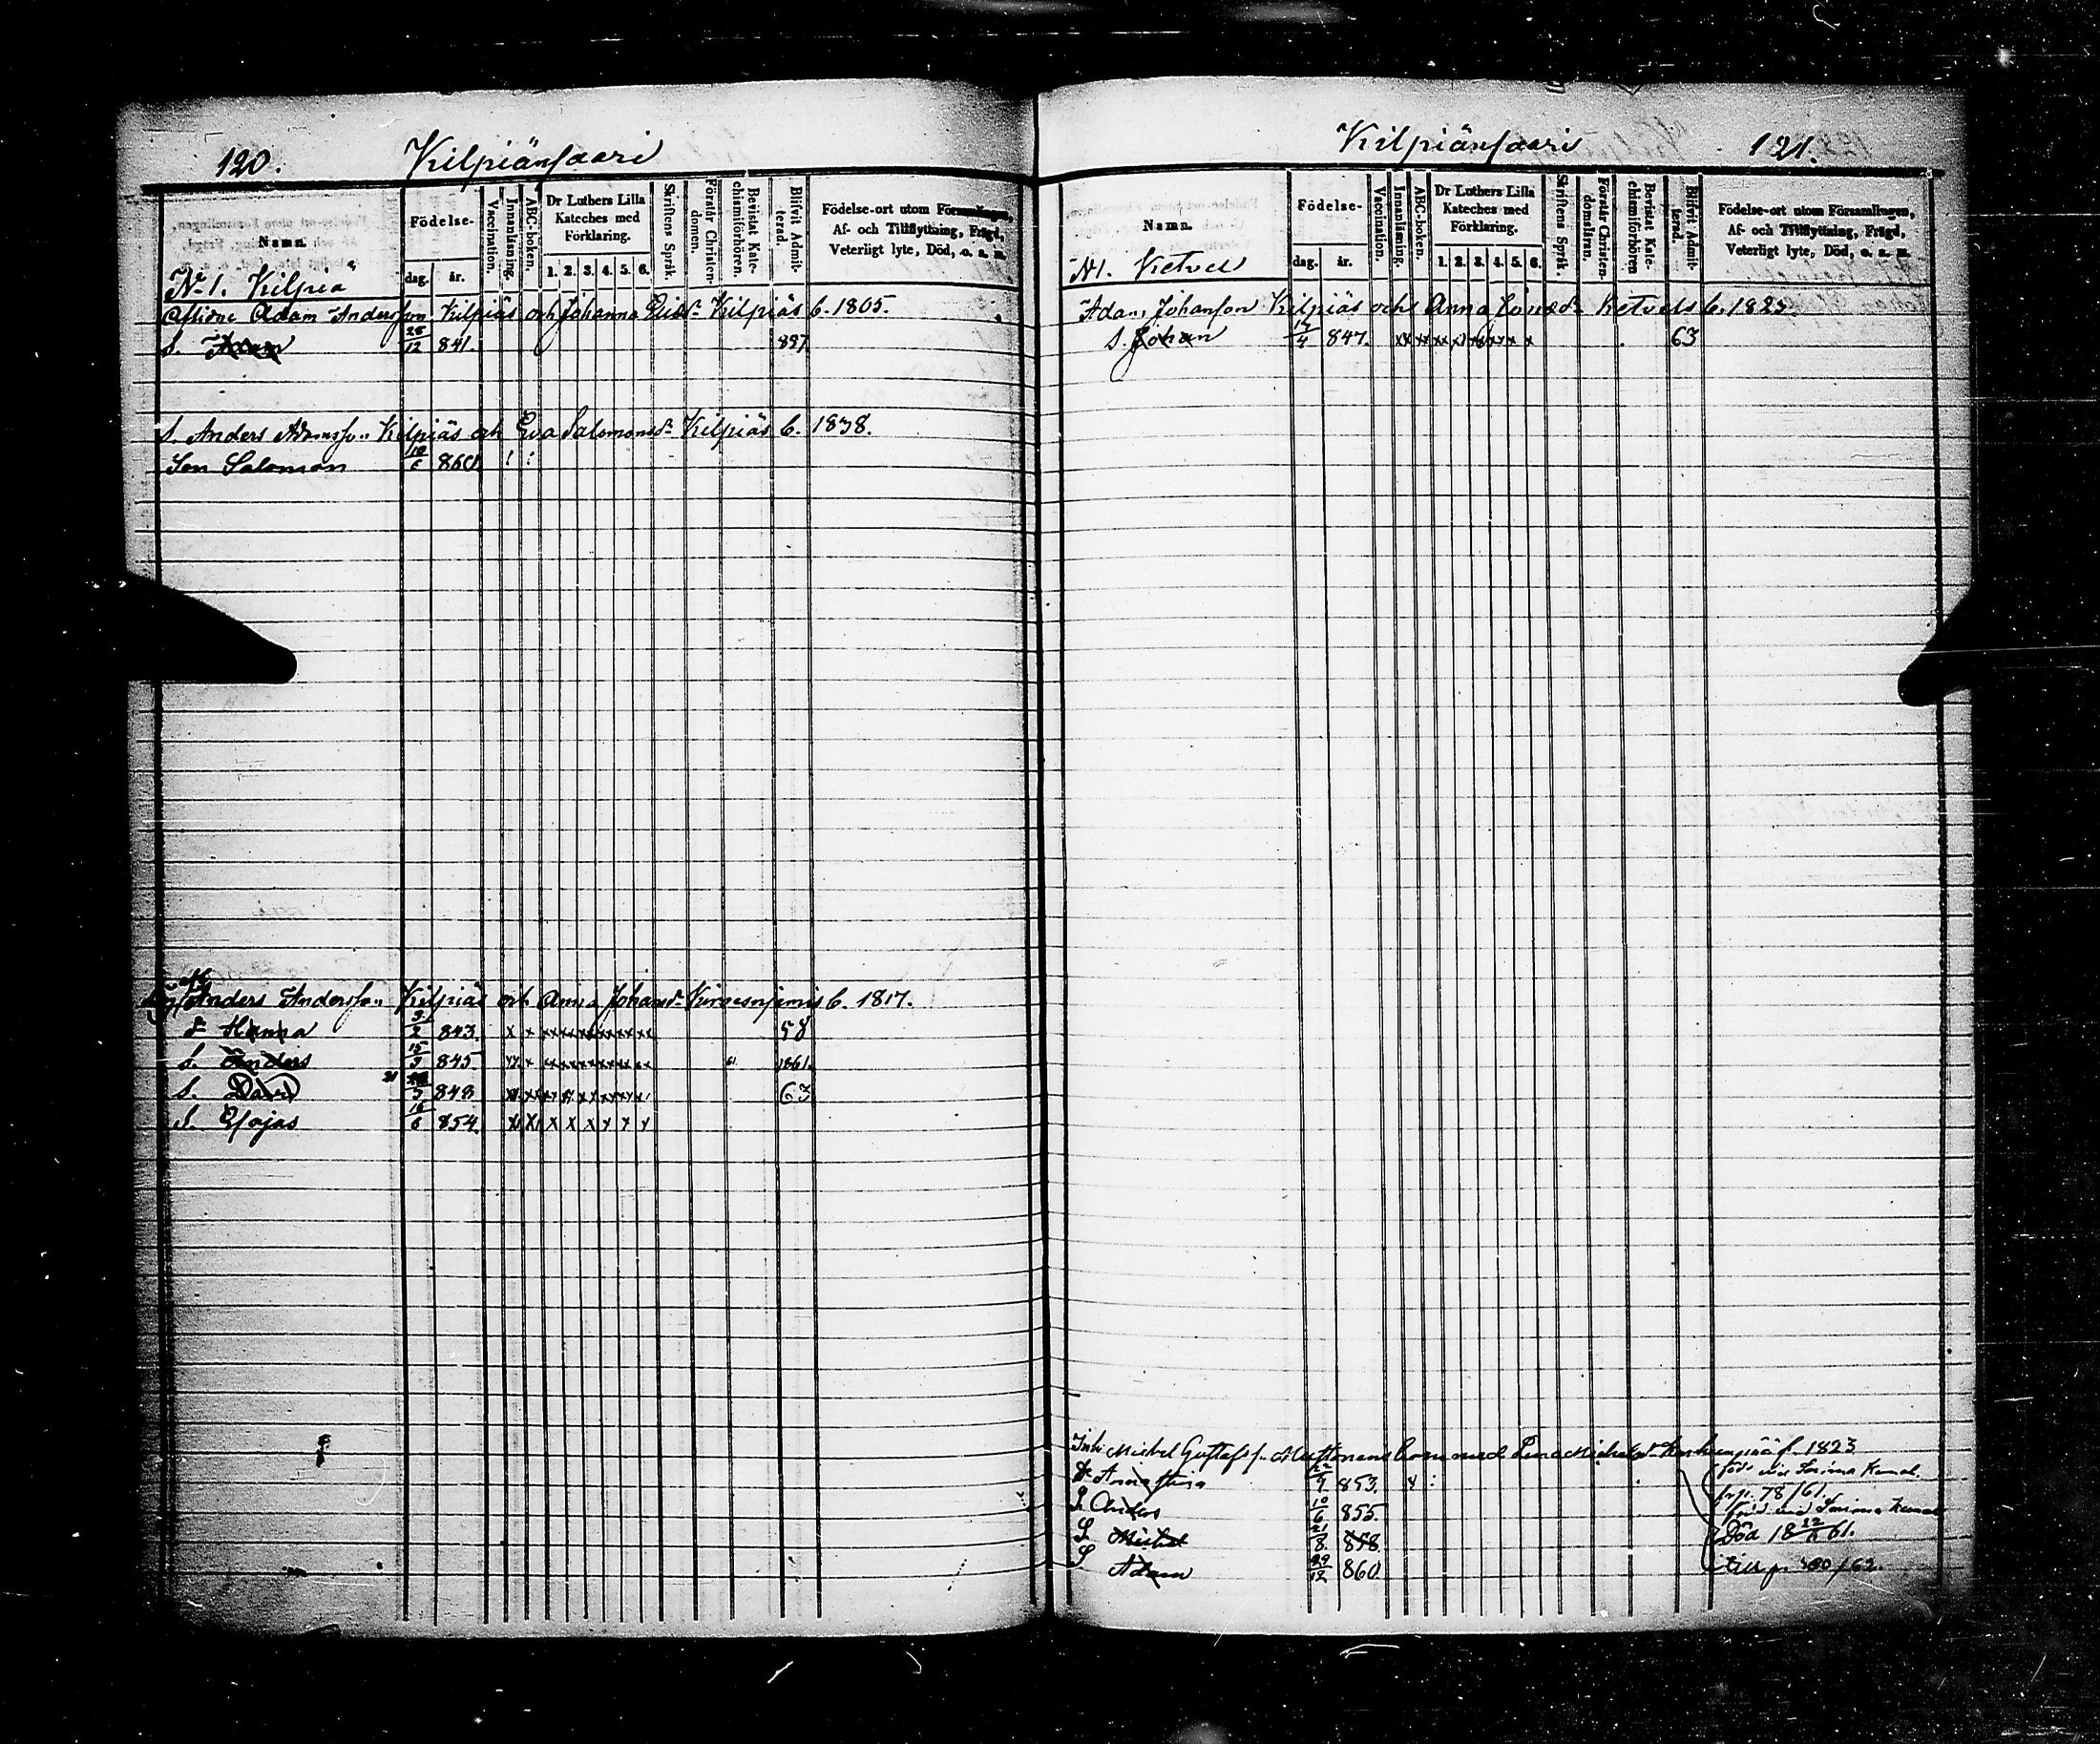 120. Kilpiänsaari
Namn. Födelse- dag. år. Vaccination. Innanläsning. ABC-boken. Dr Luthers Lilla Kateches med Förklaring. 1. 2. 3. 4. 5. 6. Skriftens Språk. Förstår Christendomen. Bevistat Katechismiförhören. Blifvit Admitterad. Födelse-ort utom Församlingen, Af- och Tillflyttning, Frägd, Veterligt lyte, Död, o. s. m.
No 1. Kilpiä
Aflidne Adam Andersson Kilpiäs och Johanna Kilpiäs b. 1805.
S. Adam 25/12 841.
S. Anders Adamsson Kilpiäs och Eva Salomonsdr Kilpiäs b. 1838.
Son Salomon 10/6 860
Anders Andersson Kilpiäs och Anna Johansdr b. 1817.
d Hanna 3/2 843. x x xx xx xx xx xx xx 58
S. Anders 15/9 845 xx x xx xx xx xx xx xx 61 1861.
S. David 21 /5 848 63
S. Esajas 16/6 854. x x x x x x
Kilpiänsaari 121.
Namn. Födelse- dag. år. Vaccination. Innanläsning. ABC-boken. Dr Luthers Lilla Kateches med Förklaring. 1. 2. 3. 4. 5. 6. Skriftens Språk. Förstår Christendomslran. Bevistat Katechismiförhören Blifvit Admitterad. Födelse-ort utom Församlingen, Af- och Tillflyttning, Frägd, Veterligt lyte, Död, o. s. m.
N 1. Ketvel
Adam Johanson Kilpiäs och Anna Ketvels b. 1823.
S. Johan 14/4 847. xx xx xx x x 63
Inh. Michel Gustafss. Muttonens barn med Lena Michelsdr f. 1823
D. 9 853.
S. Anders 10/6 855. frp. 78/61.
S Michel 21/8 858. Död 18 61.
S Adam 29/12 860